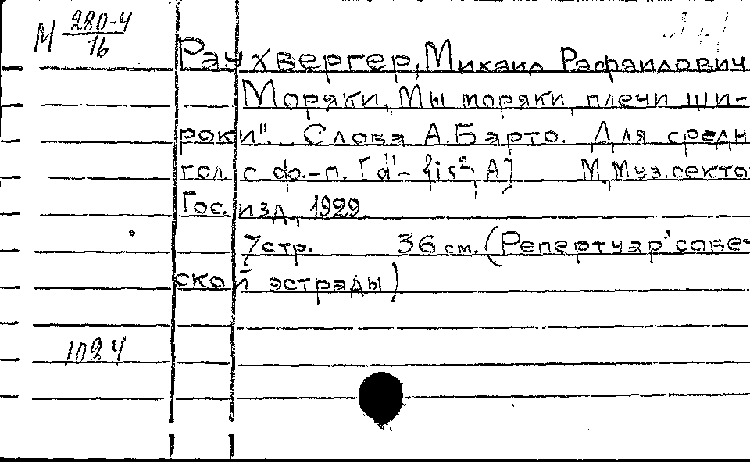 М 280-4
16
Раухвергер, Михаил Рафаилович
Моряки, „Мы моряки, плечи ши-
роки"... Слова А. Барто. Для средн
гол. с ф.-п. [d'- fis², A] М, Муз. секто
Гос. изд., 1929
7 стр. 36 см. (Репертуар совет
ской эстрады)
1024